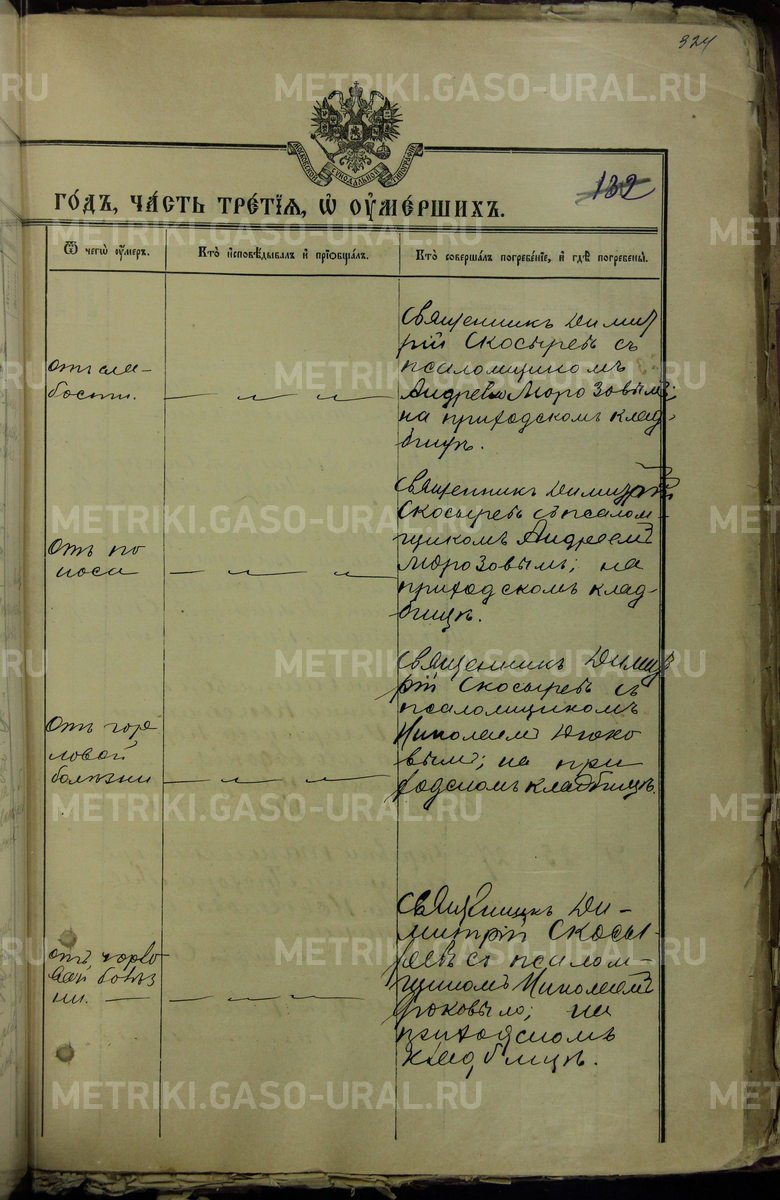 324
МОСКОВСКОЙ СѴНОДАЛЬНОЙ ТИПОГРАФІИ
132
ГО́ДЪ, ЧА́СТЬ ТРЕ́ТІѦ, Ѡ҆ ОУ҆МЕ́РШИХЪ.
Ѿ чегѡ̀ оу҆́меръ.
Кто̀ и҆сповѣ́дывалъ и҆ прїѡбща́лъ.
Кто̀ соверша́лъ погребе́нїе, и҆ гдѣ̀ погребены̀.
отъ сла-
бости.
Священникъ Димит
рій Скосыревъ съ
псаломщикомъ
Андреемъ Морозовымъ;
на приходскомъ клад-
бищѣ.
Отъ по
носа
Священникъ Димитрій
Скосыревъ съ псалом-
щикомъ Андреемъ
Морозовымъ; на
приходскомъ клад-
бищѣ.
Отъ гор
ловой
болѣзни
Священникъ Димит
рій Скосыревъ съ
псаломщикомъ
Николаемъ
вымъ; на при
ходскомъ кладбищѣ.
отъ горло
вой болѣз
ни.
Священникъ Ди-
митрій Скосы-
ревъ съ псалом-
щикомъ Николаемъ
на
приходскомъ
кладбищѣ.
METRIKI.GASO-URAL.RU